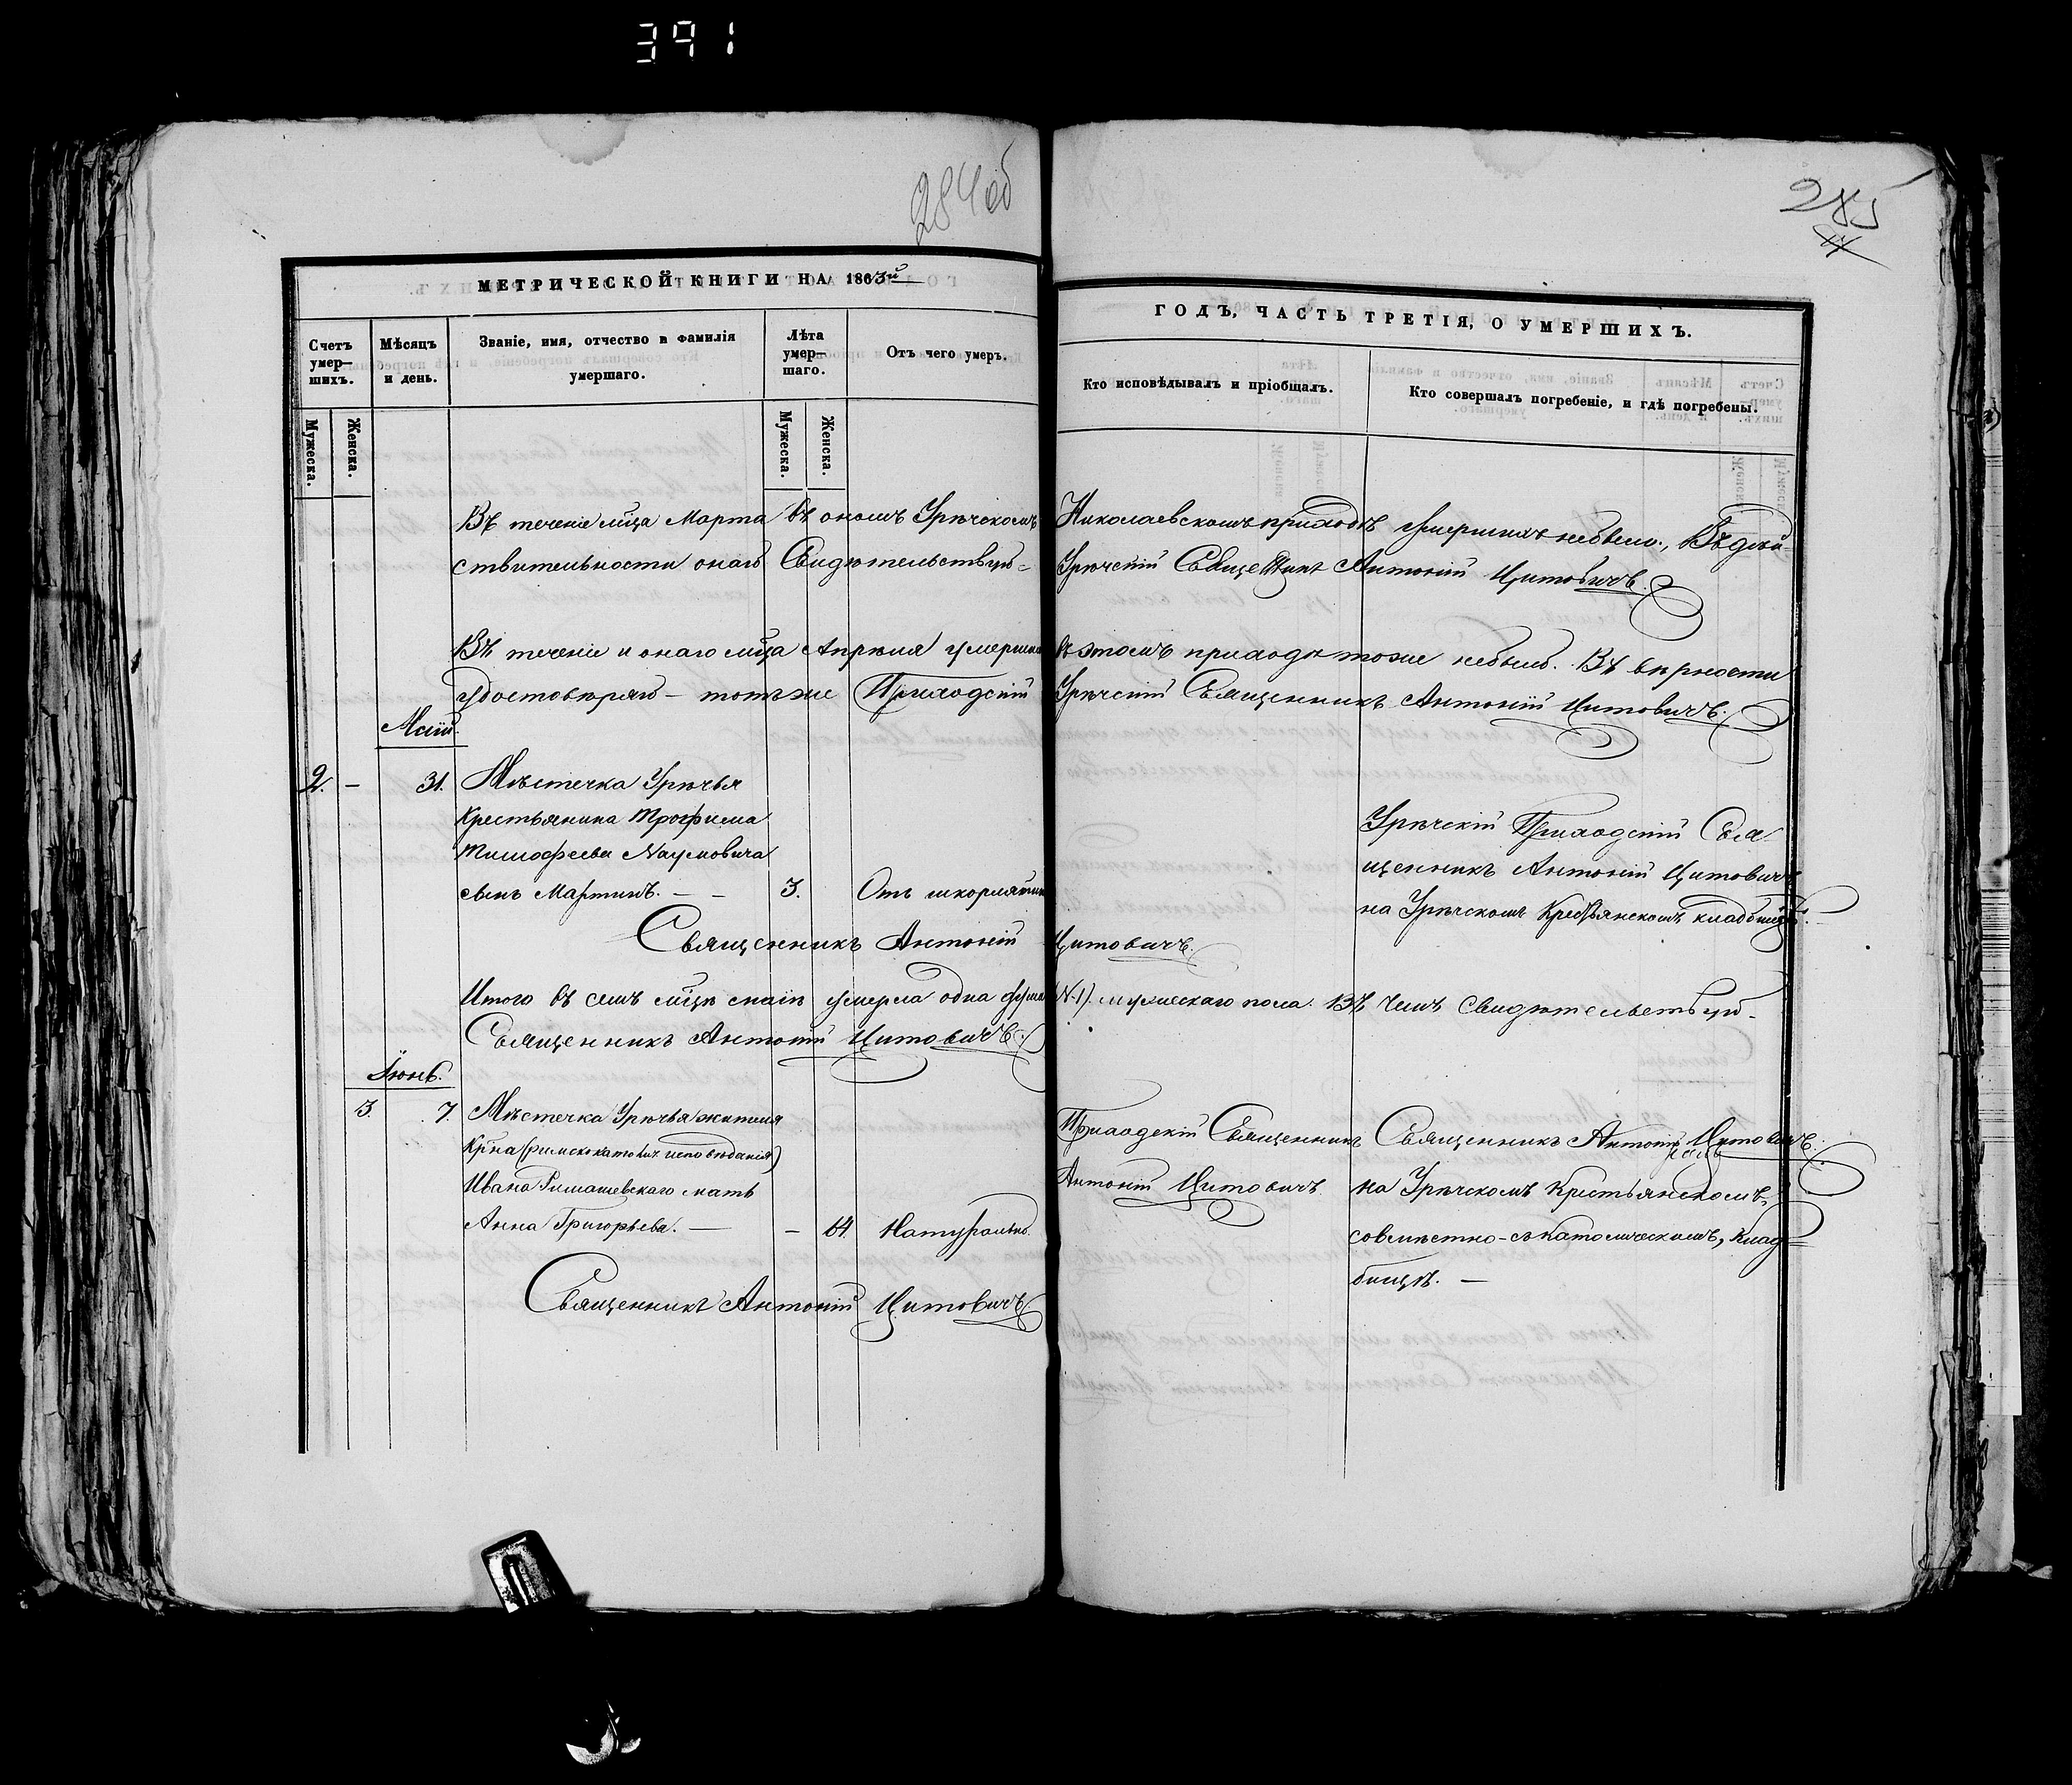 391
284об
285
МЕТРИЧЕСКОЙ КНИГИ НА 1863й
ГОДЪ, ЧАСТЬ ТРЕТІЯ, О УМЕРШИХЪ.
Счетъ умер-шихъ.
Мѣсяцъ и день.
Званіе, имя, отчество и фамилія умершаго.
Лѣта умер-шаго.
Отъ чего умеръ.
Кто исповѣдывалъ и пріобщалъ.
Кто совершалъ погребеніе, и гдѣ погребены.
Мужеска.
Женска.
Мужеска.
Женска.
Въ теченіе мѣца Марта въ ономъ Урѣчскомъ Николаевскомъ приходѣ умершихъ небыло., Въ дѣй-
ствительности онаго Свидѣтельствую= Урѣчскій Священникъ Антоній Цитовичъ.
Въ теченіи онаго мѣца Апрѣля умершихъ въ этомъ приходѣ тоже небыло. Въ вѣрности
удостовѣряю - тотъже Приходскій Урѣчскій Священникъ Антоній Цитовичъ.
Маій.
2. - 31. Мѣстечка Урѣчья
Крестьянина Трофима
Тимофеева Наумовича
сынъ Мартинъ. - - 3. Отъ шкорлятины
Урѣчскій Приходскій Свя-
щенникъ Антоній Цитовичъ
на Урѣчскомъ Крестьянскомъ кладбищѣ.
Священникъ Антоній Цитовичъ.
Итого въ семъ мѣцѣ маіѣ умерла одна душа (N.1) мужескаго пола. Въ чемъ Свидѣтельствую-
Священникъ Антоній Цитовичъ.
Іюнь.
3. 7. Мѣстечка Урѣчья жителя
Крна (римскокатолич исповѣданія)
Ивана Римашевскаго мать
Анна Григорьева. - - 64 Натурально.
Приходскій Священникъ
Антоній Цитовичъ
Священникъ Антоній Цитовичъ.
на Урѣчскомъ Крестьянскомъ,
совмѣстно-съ католическомъ, Клад=
бищѣ. -
Священникъ Антоній Цитовичъ.